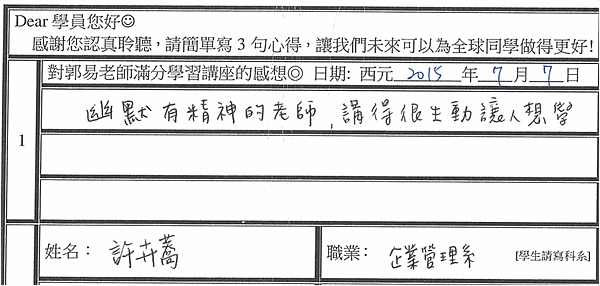 Dear 學員您好☺
感謝您認真聆聽，請簡單寫 3 句心得，讓我們未來可以為全球同學做得更好!
對郭易老師滿分學習講座的感想◎ 日期: 西元 2015 年 7 月 7 日
1
幽默有精神的老師，講得很生動讓人想學
姓名： 許卉蕎
職業： 企業管理系 [學生請寫科系]